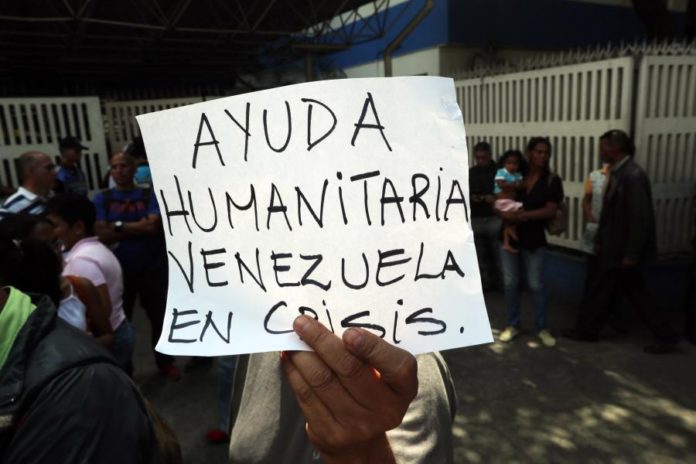 AYUDA
HUMANiTARiA
VENEZUELA
EN CRiSiS.